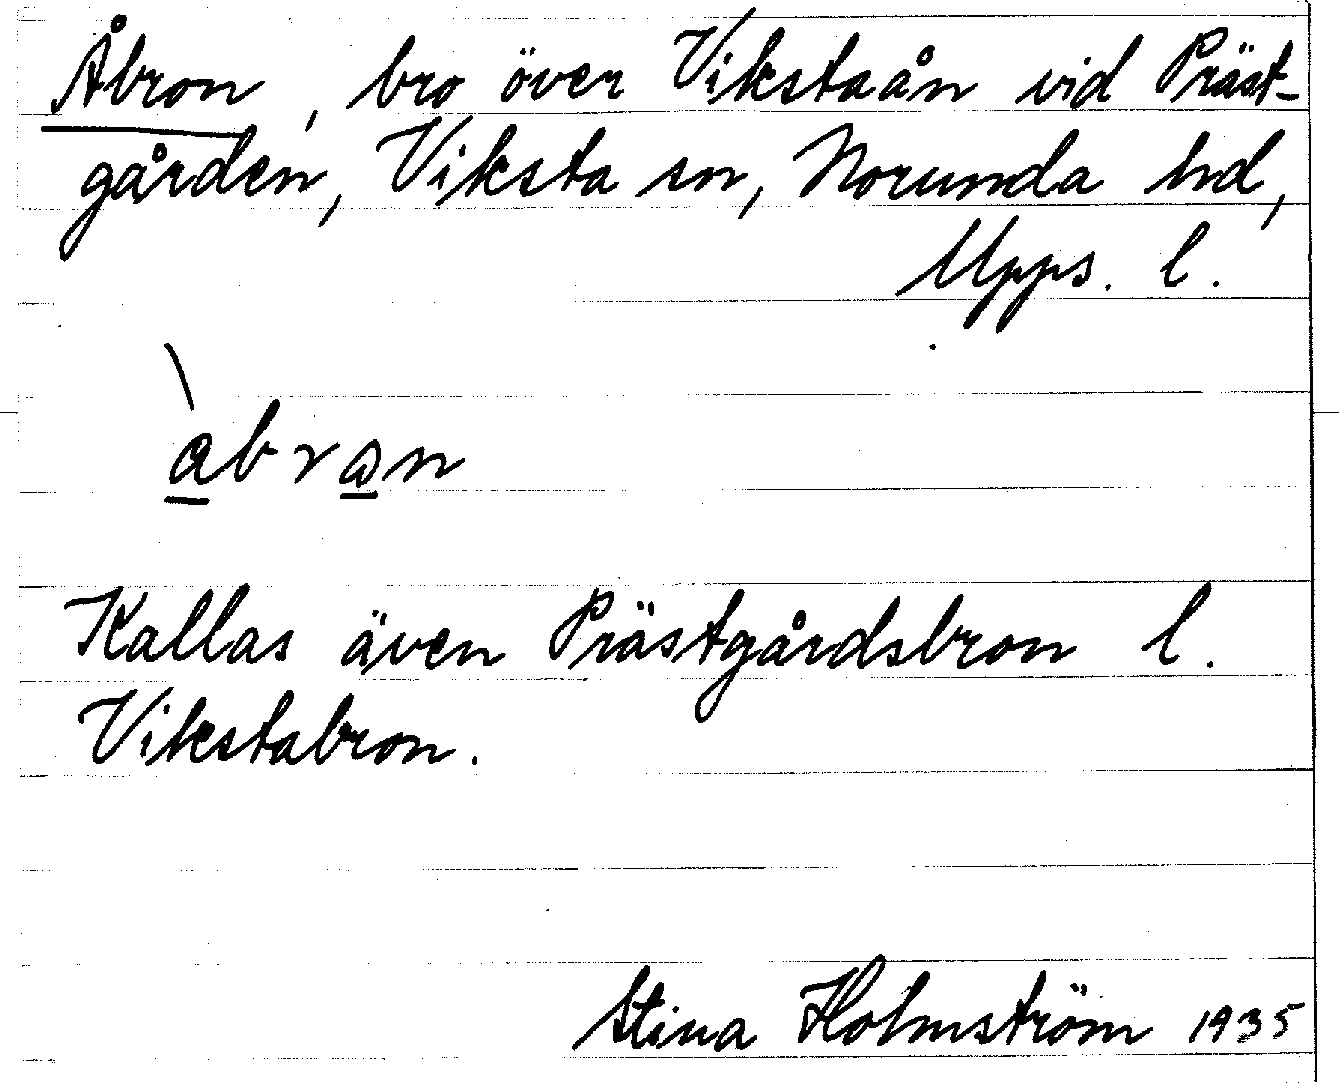 Åbron, bro över Vikstaån vid Präst-
gården, Viksta sn, Norunda hd,
Upps. l.
àbran
Kallas även Prästgårdsbron l.
Vikstabron.
Stina Holmström 1935